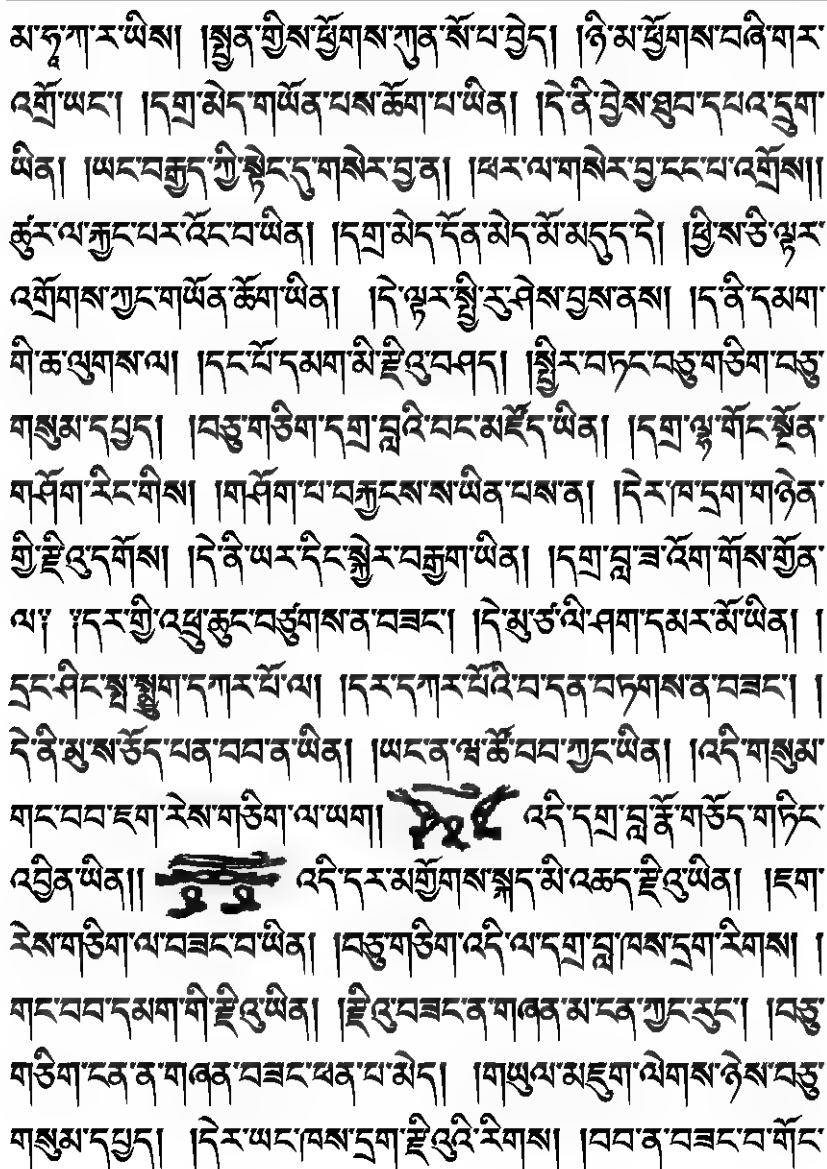 མ་ཧཱུ་ཀ་ར་ཡིས། །སྤྲུན་གྱིས་ཕྱོགས་ཀུན་སོ་པ་བྱེད། །ཉི་མ་ཕྱོགས་བཞི་གར་
འགྲོ་ཡང་། །དགྲ་མེད་གཡོན་པས་ཆོག་པ་ཡིན། །དེ་ནི་བྱེས་ཐུབ་དཔའ་དྲུག་
ཡིན། །ཡང་བརྒྱད་ཀྱི་སྟེང་དུ་གསེར་བྱ་ན། །ཕར་ལ་གསེར་བྱ་ངང་པ་འགྲོས།།
ཚུར་ལ་རྐྱང་པར་འོང་བ་ཡིན། །དགྲ་མེད་དོན་མེད་མོ་མདུད་དེ། །ཕྱི་ས་ཅི་ལྟར་
འགྲོགས་ཀྱང་གཡོན་ཆོག་ཡིན། །དེ་ལྟར་སྤྱི་རུ་ཤེས་བྱས་ནས། །ད་ནི་དམག་
གི་ཆ་ལུགས་ལ། །དང་པོ་དམག་མི་རྫིའུ་བཤད། །སྤྱིར་བཏང་བཅུ་གཅིག་བཅུ་
གསུམ་དཔྱད། །བཅུ་གཅིག་དགྲ་བླའི་བང་མཛོད་ཡིན། །དགྲ་ལྷ་གོང་སྔོན་
གཤོག་རིང་གིས། །གཤོག་པ་བརྐྱངས་ས་ཡིན་པས་ན། །དེར་ཁ་དྲག་གཉེན་
གྱི་རྫིའུ་དགོས། །དེ་ནི་ཡར་དིང་སྐྱེར་བརྒྱག་ཡིན། །དགྲ་བླ་ཟ་འོག་གོས་གྱོན་
ལ༔ ༔དར་གྱི་འཕྲུ་ཆུང་བཙུགས་ན་བཟང་། །དེ་མུ་ཙ་ལི་ཤག་དམར་མོ་ཡིན། །
དྲང་ཤིང་སྤ་སྨྱུག་དཀར་པོ་ལ། །དར་དཀར་པོའི་བ་དན་བཏགས་ན་བཟང་། །
དེ་ནི་མུ་ས་ཅོད་པན་བབ་ན་ཡིན། །ཡང་ན་ཝ་ཚོ་བབ་ཀྱང་ཡིན། །འདི་གསུམ་
གང་བབ་ཇག་རེས་གཅིག་ལ་ཡག། འདི་དགྲ་བླ་རྣོ་གཅོད་གཏིང་
འབྱིན་ཡིན།། འདི་དར་མགྱོགས་སྐད་མི་འཆད་རྫིའུ་ཡིན། །ཇག་
རེས་གཅིག་ལ་བཟང་བ་ཡིན། །བཅུ་གཅིག་འདི་ལ་དགྲ་བླ་ཁས་དྲག་རིགས། །
གང་བབ་དམག་གི་རྫིའུ་ཡིན། །རྫིའུ་བཟང་ན་གཞན་མ་ངན་ཀྱང་རུང་། །བཅུ་
གཅིག་ངན་ན་གཞན་བཟང་ཕན་པ་མེད། །གཡུལ་མཇུག་ལེགས་ཉེས་བཅུ་
གསུམ་དཔྱད། །དེར་ཡང་ཁས་དྲག་རྫིའུའི་རིགས། །བབ་ན་བཟང་བ་གོང་